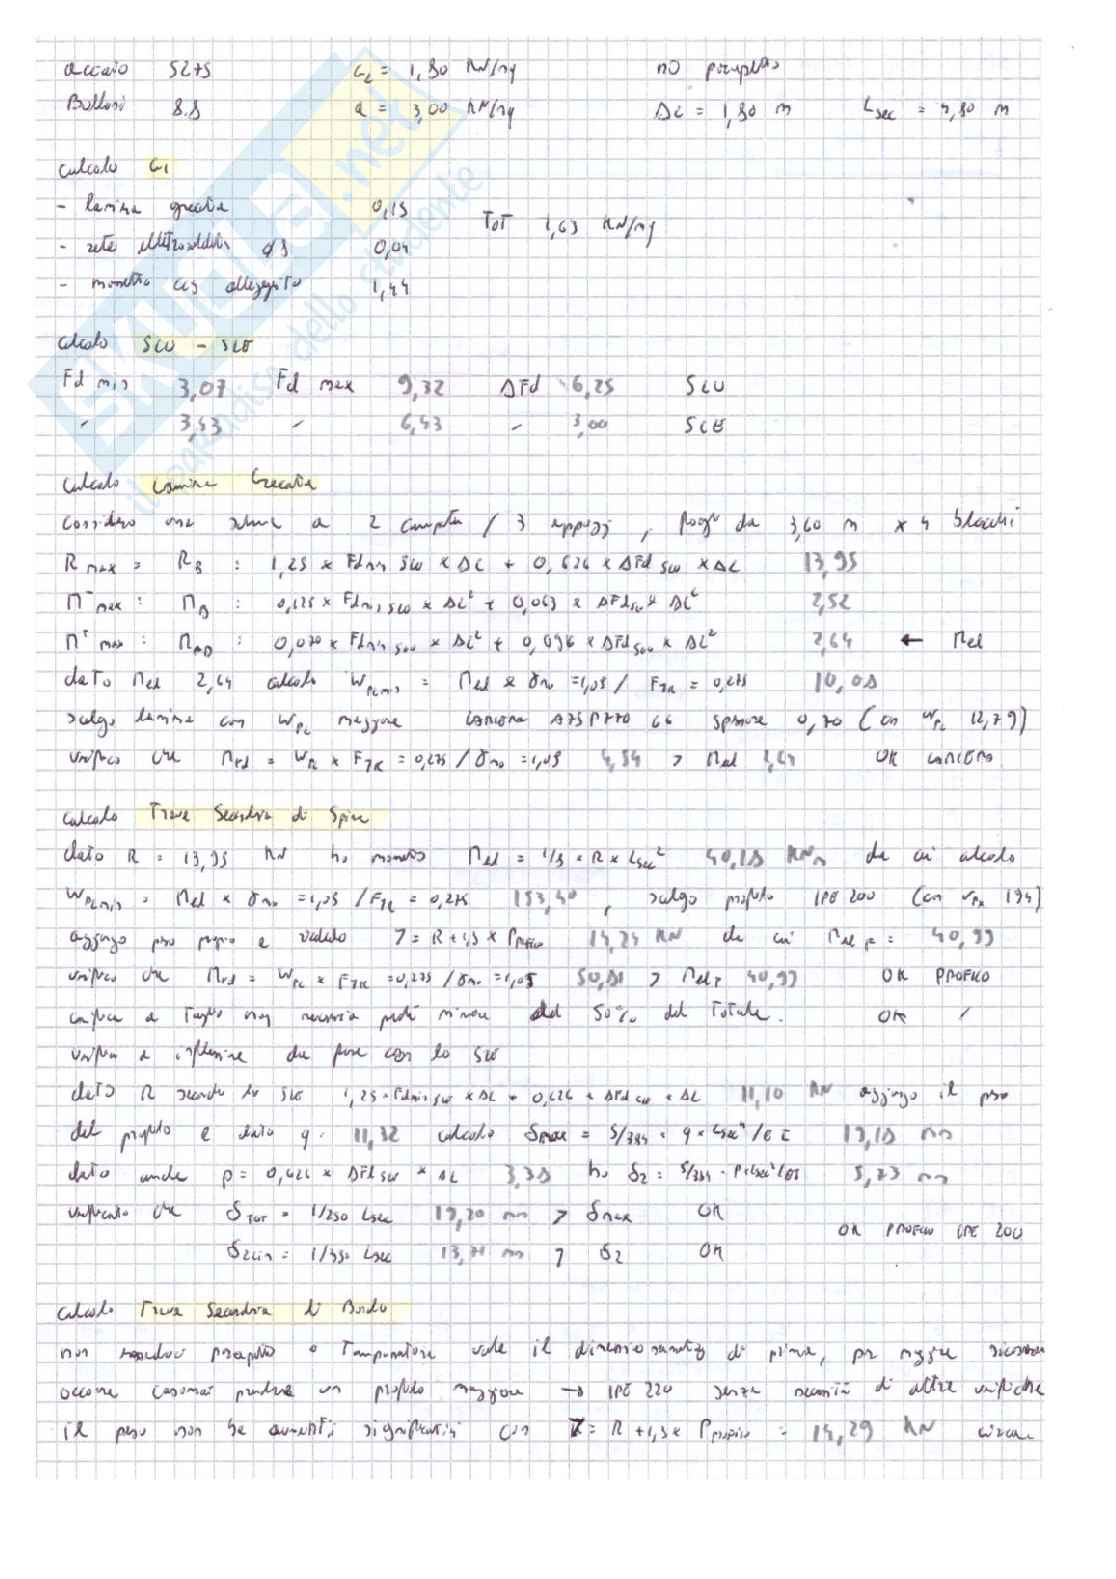 acciaio S275 G2 = 1,80 KN/mq no parapetto
Bulloni 8.8 Q = 3,00 KN/mq ΔL = 1,80 m Lsec = 4,80 m
calcolo G1
- lamiera grecata 0,15
- rete elettrosaldata ø8 0,04 TOT 1,63 KN/mq
- massetto cls alleggerito 1,44
calcolo SLU - SLE
Fd min 3,07 Fd max 9,32 ΔFd 6,25 SLU
〃 3,43 〃 6,43 〃 3,00 SLE
calcolo Lamiera Grecata
considero uno schema a 2 campate / 3 appoggi, da 3,60 m x 4
R max = RB : 1,25 x Fdmin SLU x ΔL + 0,626 x ΔFd SLU x ΔL 13,95
M⁻max = MB : 0,125 x Fdmin SLU x ΔL² + 0,063 x ΔFd SLU x ΔL² 2,52
M⁺max = MAB : 0,070 x Fdmin SLU x ΔL² + 0,096 x ΔFd SLU x ΔL² 2,64 ← Med
dato Med 2,64 calcolo Wpl min = Med x γm0 =1,05 / Fyk = 0,275 10,08
scelgo lamiera con Wpl maggiore LAMIERA A75 P770 G6 spessore 0,70 (con Wpl 12,79)
verifico che Mrd = Wpl x Fyk = 0,275 / γm0 = 1,05 > Med 2,64 OK LAMIERA
calcolo Trave Secondaria di Spina
dato R = 13,95 KN ho momento Med = 1/8 x R x Lsec² 40,18 KNm da cui calcolo
Wpl min = Med x γm0 =1,05 / Fyk = 0,275 153,40, scelgo profilo IPE 200 (con Wpx 194)
aggiungo peso proprio e valuto Z = R + 1,3 x Pproprio 14,24 KN da cui Med p = 40,99
verifico che Mrd = Wpl x Fyk =0,275 / γm0 =1,05 50,81 > Medp 40,99 OK PROFILO
verifica a Taglio non necessaria poiché minore del 50% del Totale. OK
verifica a inflessione da fare con lo SLE
dato R secondo lo SLE 1,25 x Fdmin SLE x ΔL + 0,626 x ΔFd SLE x ΔL 11,10 KN aggiungo il peso
del profilo e dato q = 11,32 calcolo δmax = 5/384 x q x Lsec⁴/E I 19,18 mm
dato anche p = 0,626 x ΔFd SLE x ΔL 3,38 ho δ2 = 5/384 x p x Lsec⁴/EI 5,73 mm
verificato che δTOT = 1/250 Lsec 19,20 mm > δmax OK
δ2lim = 1/350 Lsec 13,71 mm > δ2 OK OK PROFILO IPE 200
calcolo Trave Secondaria di Bordo
non essendoci parapetto o Tamponatura vale il dimensionamento di prima, per maggior sicurezza
occorre casomai prendere un profilo maggiore → IPE 220 senza necessità di altre verifiche
il peso non si aumenta significativamente con Z = R + 1,3 x Pproprio = 14,29 KN circa.